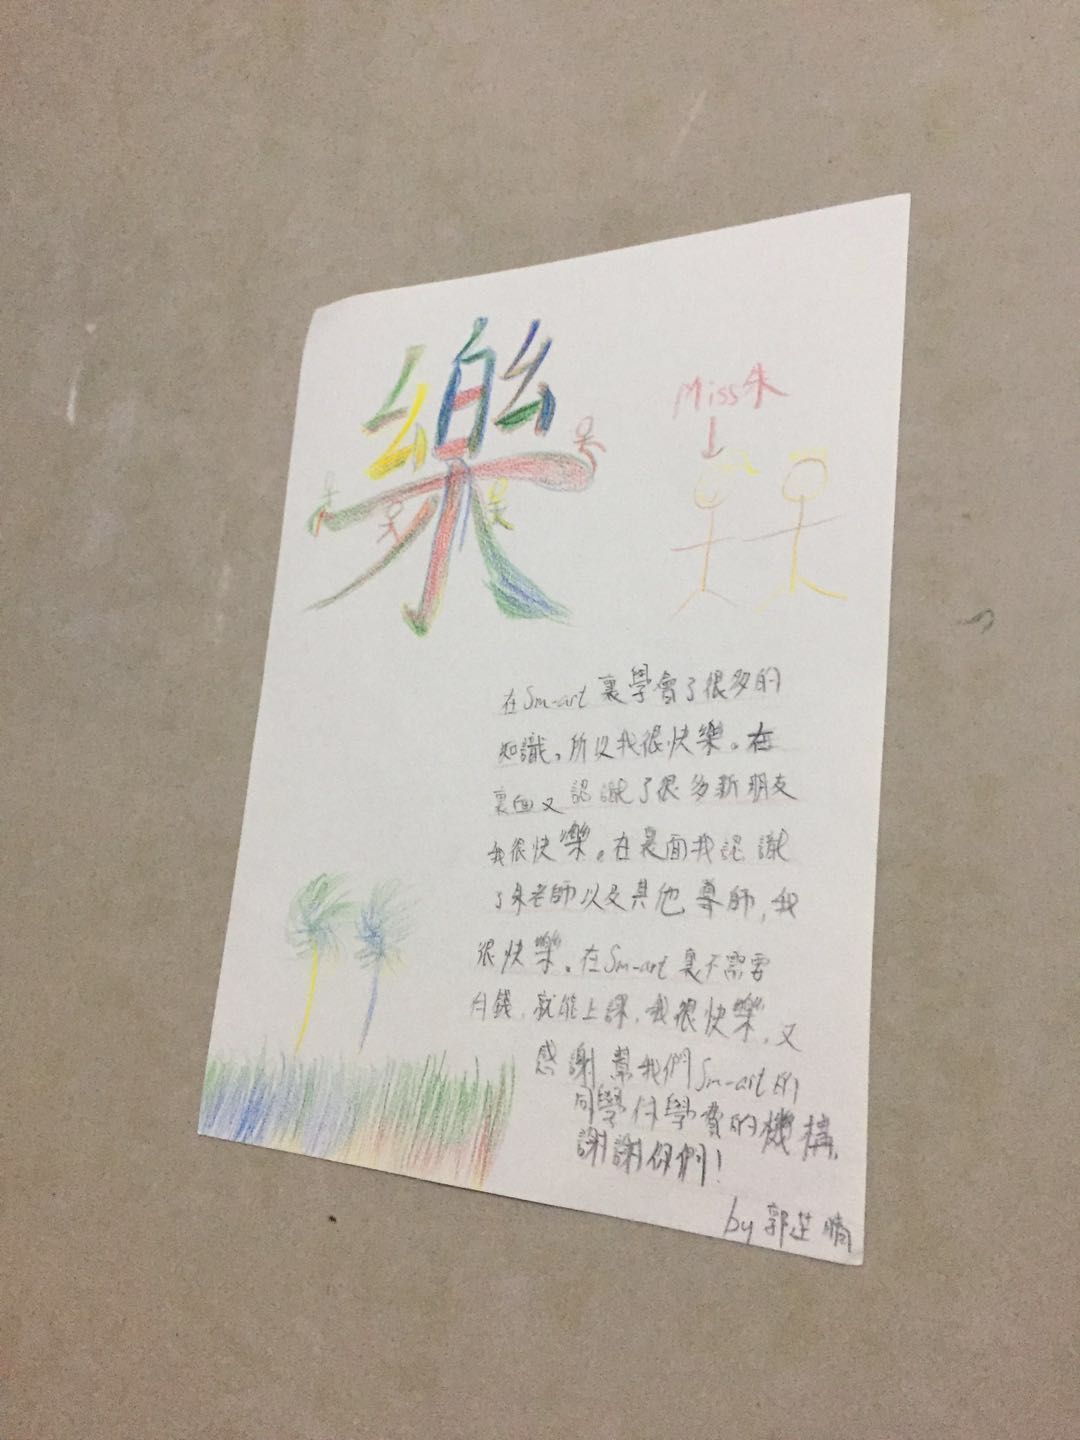 樂
Miss朱
在Sm-art 裏學會了很多的
知識，所以我很快樂。在
裏面又認識了很多新朋友
我很快樂。在裏面我認識
了朱老師以及其他導師，我
很快樂。在Sm-art裏不需要
付錢，就能上課，我很快樂，又
感謝幫我們Sm-art的
同學付學費的機構，
謝謝你們！
by 郭芷晴